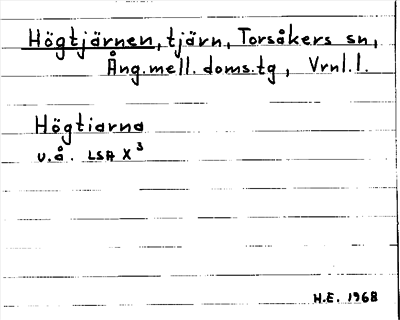 Högtjärnen, tjärn, Torsåkers sn,
Ång.mell. doms.tg, Vrnl.l.
Högtiarna
u.å. LSA X³
H.E. 1968